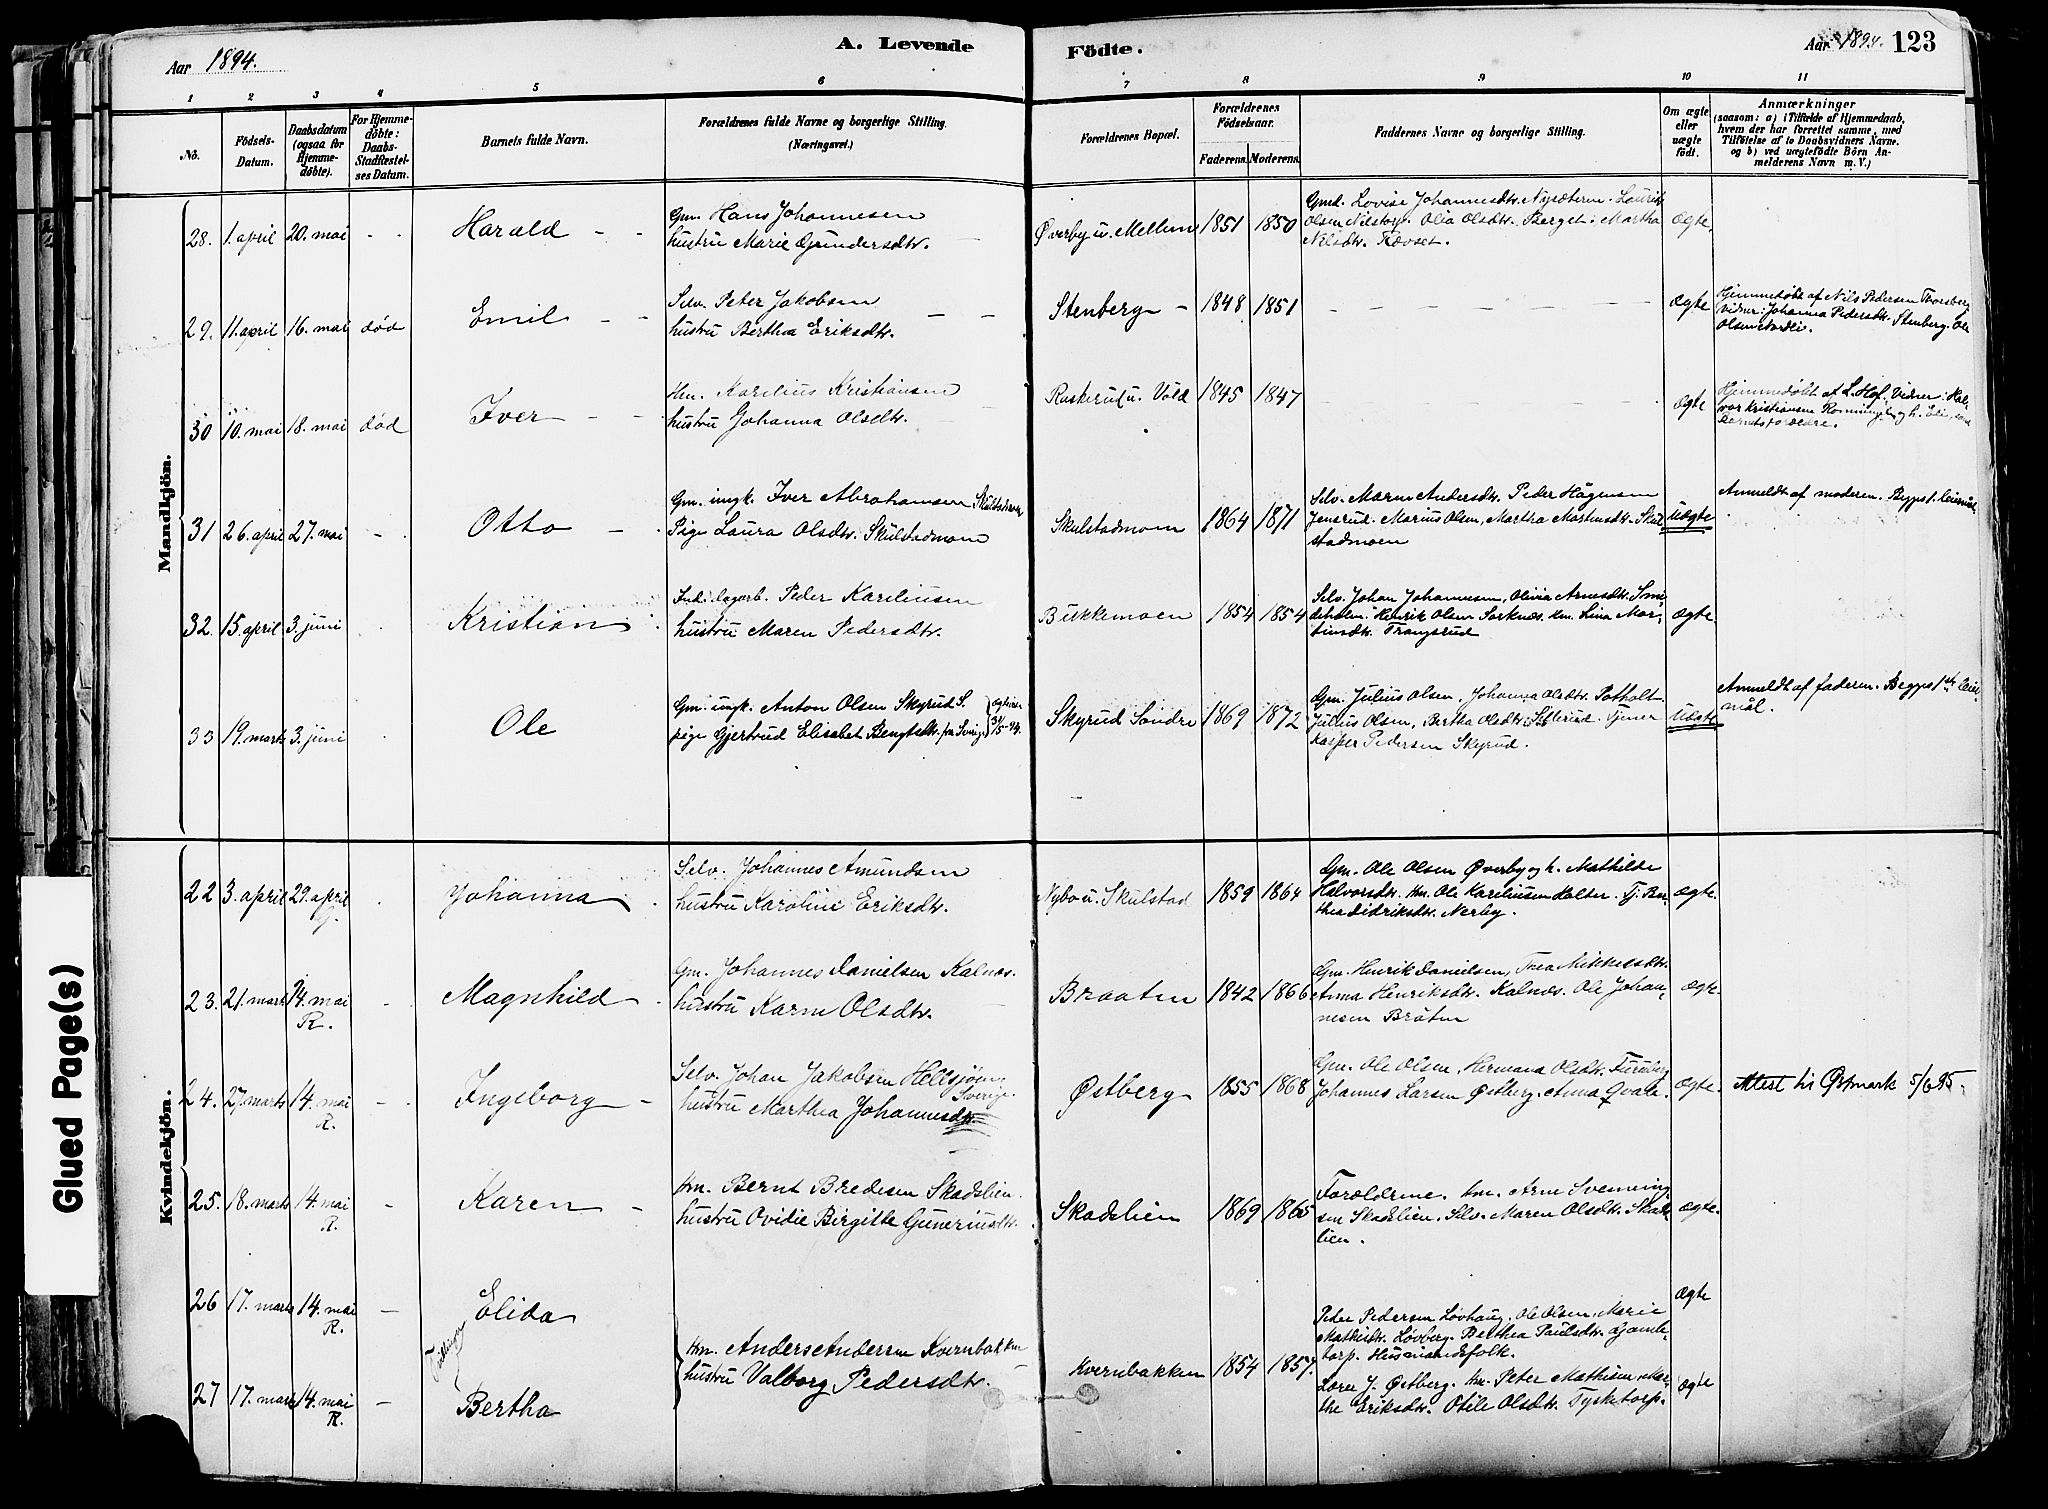 Aar 1894.
A. Levende
Födte.
Aar 1894. 123
1 2 3 4 5 6 7 8 9 10 11
No.
Födsels-Datum.
Daabsdatum (ogsaa for Hjemmedøbte).
For Hjemmedøbte: Daabs-Stadfæstelses Datum.
Barnets fulde Navn.
Forældrenes fulde Navne og borgerlige Stilling.
(Næringsvei.)
Forældrenes Bopæl.
Forældrenes Födselsaar.
Faderens. Moderens.
Faddernes Navne og borgerlige Stilling.
Om ægte eller uægte født.
Anmærkninger
(saasom: a) i Tilfælde af Hjemmedaab,
hvem der har forrettet samme, med
Tilföielse af to Daabsvidners Navne.
og b) ved uægtefödte Börn Anmelderens Navn m. V.)
Mandkjön.
28. 1. april 20. mai - - Harald - -
Gm. Hans Johannesen
hustru Marie Gundersdtr.
Øverby u. Mellem 1851 1850
Gmd. Lovise Johannesdtr. Nysæteren. Laurits
Olsen Nilstorp. Olia Olsdtr. Berget. Martha
Nilsdtr.
Ægte.
29. 11. april 16. mai død Emil - -
Selv. Peter Jakobsen
hustru Berthea Eriksdtr.
Stenberg - 1848 1851
ægte
Hjemmedøbt af Nils Pedersen
Vidner: Johanna Pedersdtr. Stenberg. Ole
Olsen
30 10. mai 18. mai død Iver - -
Hm. Karelius Kristiansen
hustru Johanna Olsdtr.
Raskerud u. Vold 1845 1847
ægte
Hjemmedøbt af L. Hof. Vidner: Halvor Kristiansen
31 26. april 27. mai - Otto -
Gm. ungk. Iver Abrahamsen Skulstadmoen
Pige Laura Olsdtr. Skulstadmoen
Skulstadmoen 1864 1871
Selv. Maren Andersdtr. Peder Hågensen
Jensrud. Marius Olsen, Martha Mortensdtr. Skulstadmoen
Uægte
Anmeldt af moderen. Begges 1. leiermål
32. 15. april 3. juni Kristian
Ind. dagarb. Peder Kareliusen
hustru Maren Pedersdtr.
Bukkemoen 1854 1854
Selv. Johan Johannesen, Olivia Arnesdtr.
Henrik Olsen Sorknæs. Hm. Lina Martinsdtr. Trangsrud
ægte
33 19. marts 3. juni Ole
Gm. ungk. Anton Olsen Skyrud S.
pige Gjertrud Elisabet Bengtsdtr. fra Sverige
Skyrud Søndre 1869 1872
Gm. Julius Olsen, Johanna Olsdtr. Potholt.
Julius Olsen, Bertha Olsdtr. Tjener
Kasper Pedersen Skyrud.
Uægte
Anmeldt af faderen. Begges 1ste leiermål.
Kvindekjön.
22 3. april 29. april G. Johanna
Selv. Johannes Amundsen
hustru Karoline Eriksdtr.
Nybo u. Skulstad 1859 1864
Gm. Ole Olsen Øverby og h. Mathilde
Halvorsdtr. Hm. Ole Kareliusen Kalter. Tj. Berthea Didriksdtr. Nerby.
ægte.
23. 21. marts 14. mai R. - Magnhild -
Gm. Johannes Danielsen Kalnæs.
hustru Karen Olsdtr.
Braaten 1842 1866
Gm. Henrik Danielsen, Thea Mikkelsdtr.
Anna Henriksdtr. Kalnæs. Ole Johannesen Bråten
ægte.
24. 27. marts 14. mai R. - Ingeborg -
Selv. Johan Jakobsen Hellsjøen, Sverige.
hustru Marthea Johannesdtr.
Østberg 1855 1868
Gm. Ole Olsen, Hermana Olsdtr. Furuberg
Johannes Larsen Østberg. Anna Qvale.
ægte
Attest til Østmark 5/6 95.
25. 18. marts 14. mai R. - Karen -
Hm. Bernt Bredesen Skadslien.
hustru Ovidie Birgitte Guneriusdtr.
Skadslien 1869 1865
Forældrene. Hm. Arne Svenningsen Skadslien. Selv. Maren Olsdtr. Skadslien.
ægte.
26 17. marts 14. mai R. - Elida
Tvillinger
27 17. marts 14. mai R. - Bertha
Hm. Anders Andersen Kvernbakken
hustru Valborg Pedersdtr.
Kvernbakken 1854 1857.
Peter Pedersen Løvhaug, Ole Olsen, Marie
Løvberg. Berthea Paulsdtr. Gamletorp. Husmandsfolk.
ægte
Lærer J. Østberg. Hm. Peter Mathisen, Marthe Eriksdtr. Otile Olsdtr. Tysketorp.
ægte
Glued Page(s)